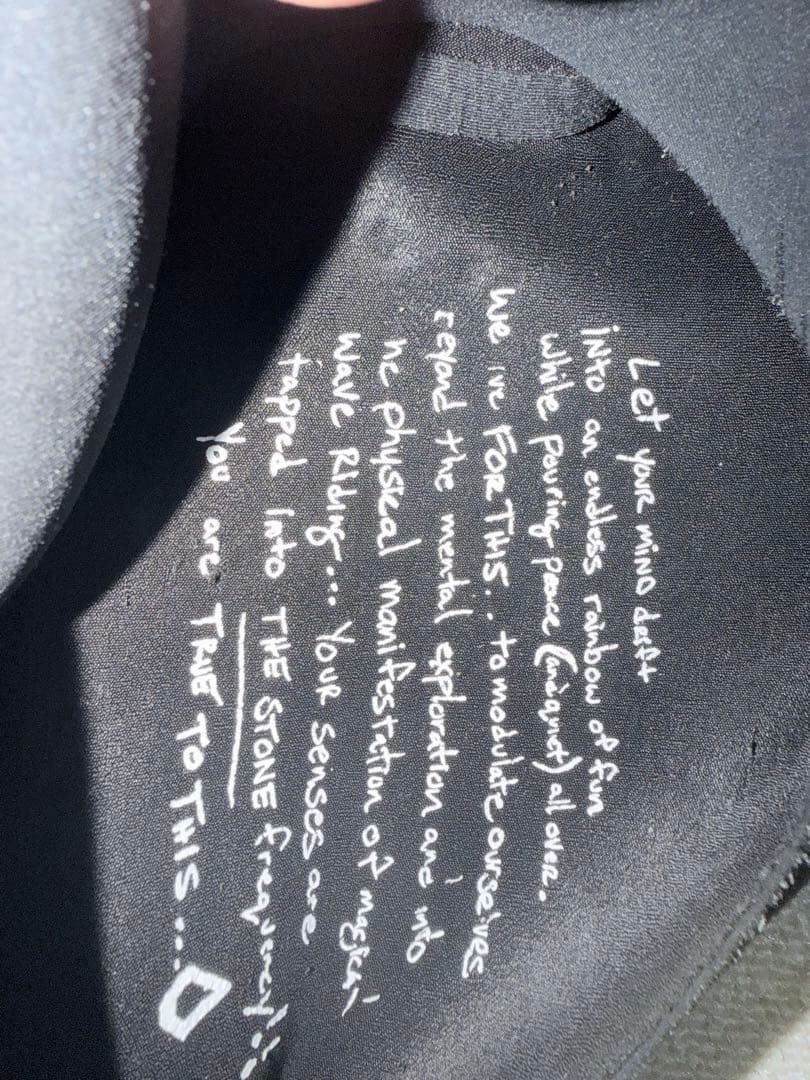 Let YOUR MIND drift
INTO an endless rainbow of fun
while pouring peace (and quiet) all over.
We ive FOR THIS.. to modulate ourselves
eyond the mental exploration and into
he physical manifestation of magical
WAVE RIDING... YOUR senses are
tapped into THE STONE frequency!!
You are TRUE TO THIS...